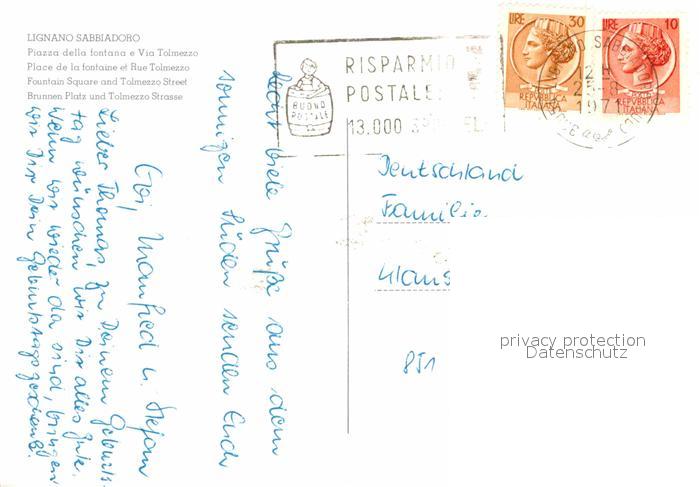 LIGNANO SABBIADORO
Piazza della fontana e Via Tolmezzo
Place de la fontaine et Rue Tolmezzo
Fountain Square and Tolmezzo Street
Brunnen Platz und Tolmezzo Strasse
BUONO
POSTALE
RISPARMIO
POSTALE:
13.000
LIRE 30
REPVBBLICA
ITALIANA
LIRE 10
REPVBBLICA
ITALIANA
1971
Deutschland
Familie
Klaus
851
viele Grüße aus dem
sonnigen Süden senden Euch
Manfred u. Stefan
Lieber Thomas, zu Deinem Geburts-
tag wünschen wir Dir alles Gute.
Wenn wir wieder da sind, bringen
wir Dir Dein Geburtstagsgeschenk.
privacy protection
Datenschutz